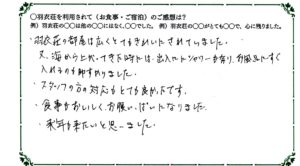 ○羽衣荘を利用されて（お食事・ご宿泊）のご感想は？
例）羽衣荘の○○は他の○○にはなく、○○でした。 例）羽衣荘の○○がとても○○で、心に残りました。
・羽衣荘の部屋は広くとてもきれいにされていました。
又、海から上がってきた時は、出入口にシャワーが有り、お風呂にすぐ
入れるのも助かりました。
・スタッフの方の対応もとても良かったです。
・食事もおいしく、お腹いっぱいになりました。
・来年も来たいと思いました。